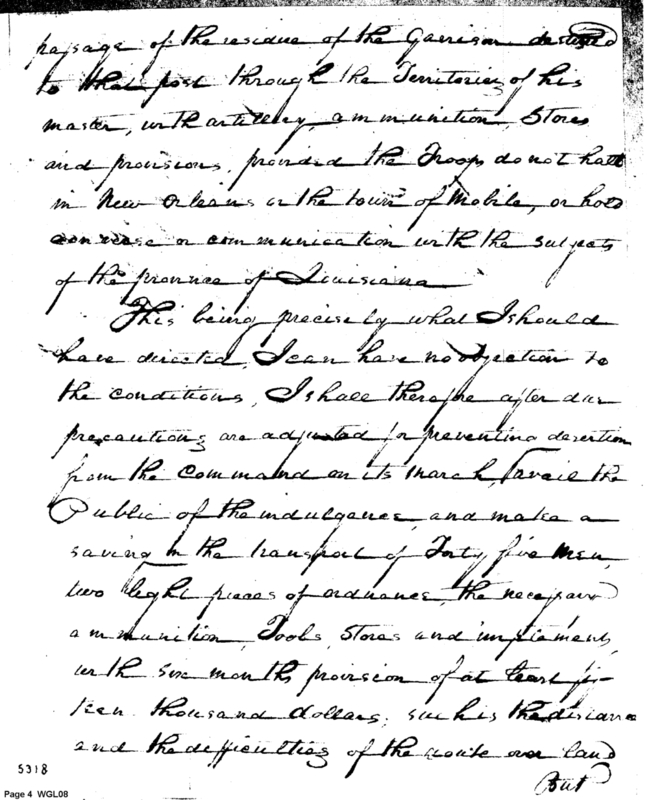 passage of the residue of the Garrison destined
to that post through the Territories of his
master, with artillery, ammunition, Stores
and provisions, provided the Troops do not halt
in New Orleans or the town of Mobile, or hold
converse or communication with the subjects
of the province of Louisiana
This being precisely what I should
have directed, I can have no objection to
the conditions, I shall therefore after due
precautions are adjusted for preventing desertion
from the command on its march, avail the
Public of the indulgence, and make a
saving in the transport of Forty five men,
two light pieces of ordnance, the necessary
ammunition, Tools, Stores and implements,
with six months provision of at least fif-
teen thousand dollars, such is the distance
and the difficulties of the route over land
But
5318
Page 4 WGL08